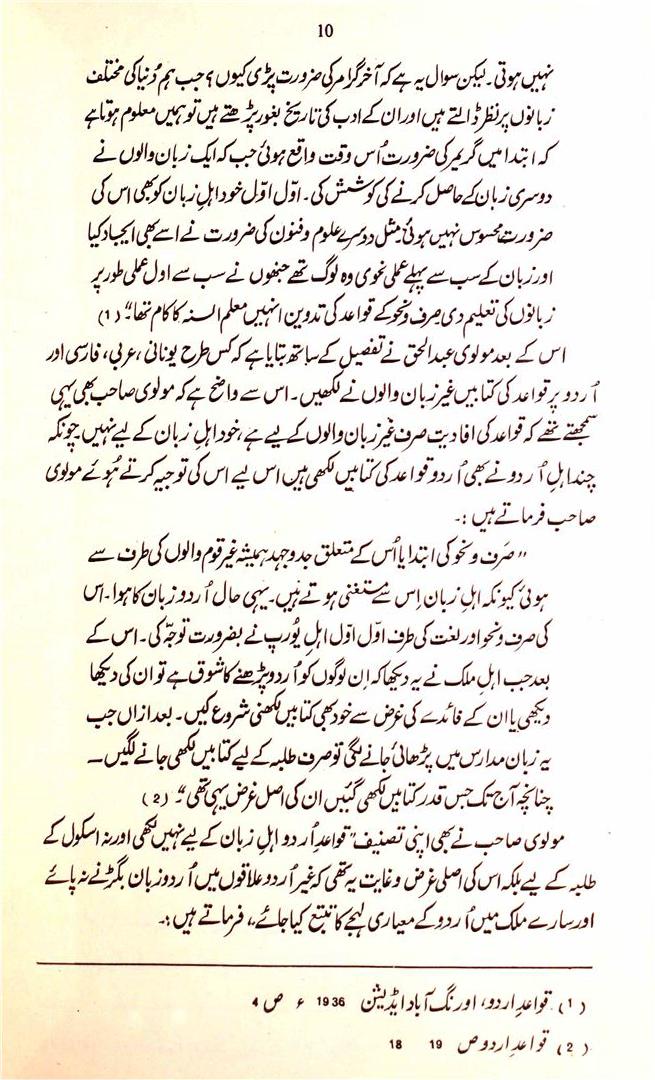 10
نہیں ہوتی۔ لیکن سوال یہ ہے کہ آخر گرامر کی ضرورت پڑی کیوں؟ جب ہم دُنیا کی مختلف
زبانوں پر نظر ڈالتے ہیں اور ان کے ادب کی تاریخ بغور پڑھتے ہیں تو ہمیں معلوم ہوتا ہے
کہ ابتدا میں گریمر کی ضرورت اُس وقت واقع ہوئی جب کہ ایک زبان والوں نے
دوسری زبان کے حاصل کرنے کی کوشش کی۔ اوّل اوّل خود اہلِ زبان کو بھی اس کی
ضرورت محسوس نہیں ہوئی مثل دوسرے علوم و فنون کی ضرورت نے اسے بھی ایجاد کیا
اور زبان کے سب سے پہلے عملی نحوی وہ لوگ تھے جنھوں نے سب سے اول عملی طور پر
زبانوں کی تعلیم دی صرف و نحو کے قواعد کی تدوین انہیں معلم السنہ کا کام تھا۔" (1)
اس کے بعد مولوی عبدالحق نے تفصیل کے ساتھ بتایا ہے کہ کس طرح یونانی، عربی، فارسی اور
اُردو پر قواعد کی کتابیں غیر زبان والوں نے لکھیں۔ اس سے واضح ہے کہ مولوی صاحب بھی یہی
سمجھتے تھے کہ قواعد کی افادیت صرف غیر زبان والوں کے لیے ہے، خود اہلِ زبان کے لیے نہیں۔ چونکہ
چند اہلِ اُردو نے بھی اُردو قواعد کی کتابیں لکھی ہیں اس لیے اس کی توجیہ کرتے ہُوئے مولوی
صاحب فرماتے ہیں :۔
"صَرف و نحو کی ابتدا یا اُس کے متعلق جدوجہد ہمیشہ غیر قوم والوں کی طرف سے
ہوئی کیونکہ اہلِ زبان اِس سے مستغنی ہوتے ہیں۔ یہی حال اُردو زبان کا ہوا۔ اس
کی صرف و نحو اور لغت کی طرف اوّل اوّل اہلِ یُورپ نے بضرورت توجّہ کی۔ اس کے
بعد جب اہلِ ملک نے یہ دیکھا کہ اِن لوگوں کو اُردو پڑھنے کا شوق ہے تو ان کی دیکھا
دیکھی یا ان کے فائدے کی غرض سے خود بھی کتابیں لکھنی شروع کیں۔ بعد ازاں جب
یہ زبان مدارس میں پڑھائی جانے لگی تو صرف طلبہ کے لیے کتابیں لکھی جانے لگیں۔
چنانچہ آج تک جس قدر کتابیں لکھی گئیں ان کی اصل غرض یہی تھی"۔ (2)
مولوی صاحب نے بھی اپنی تصنیف "قواعدِ اُردو اہلِ زبان کے لیے نہیں لکھی اور نہ اسکول کے
طلبہ کے لیے بلکہ اس کی اصلی غرض و غایت یہ تھی کہ غیر اُردو علاقوں میں اُردو زبان بگڑنے نہ پائے
اور سارے ملک میں اُردو کے معیاری لہجے کا تتبع کیا جائے، فرماتے ہیں :۔
(1) قواعدِ اردو، اورنگ آباد ایڈیشن 1936 ء ص 4
(2) قواعدِ اردو ص 19 18